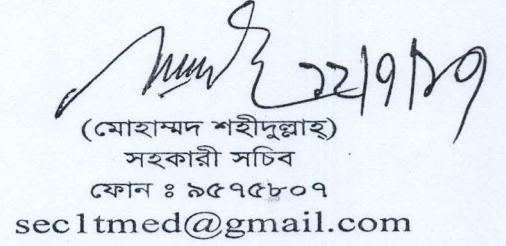 ১২/৭/১৭
(মোহাম্মদ শহীদুল্লাহ্)
সহকারী সচিব
ফোন ঃ ৯৫৭৫৮০৭
sec1tmed@gmail.com